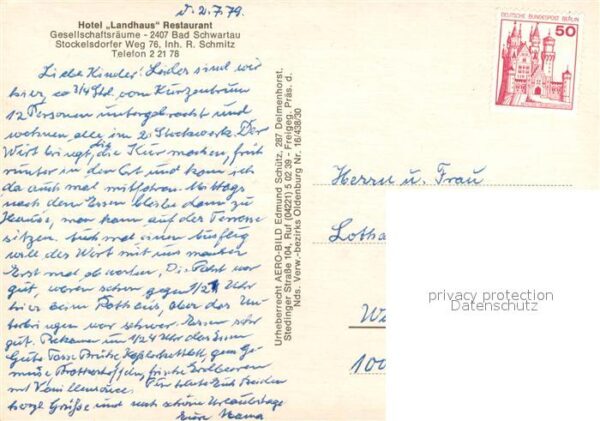 d. 2.7.79.
Hotel „Landhaus" Restaurant
Gesellschaftsräume - 2407 Bad Schwartau
Stockelsdorfer Weg 76, Inh. R. Schmitz
Telefon 2 21 78
Liebe Kinder! Leider sind wir
hier, ca 3/4 Std. vom Kurzentrum
12 Personen untergebracht und
wohnen alle im 2. Stockwerk. Der
Wirt bringt, die Kur machen, früh
runter in den Ort und kann ich
da auch mal mitfahren. Mittags
nach dem Essen bleibe dann zu
Hause, man kann auf der Terrasse
sitzen. Auch mal einen Ausflug
will der Wirt mit uns machen
Erst mal abwarten. Die Fahrt war
gut, waren schon gegen 1/2 Uhr
hier beim Rathaus, aber das Un-
terbringen war schwer. Essen sehr
gut. Bekamen um 1/2 Uhr das Essen
Gute Tasse Brühe, gem. Ge-
müse frische Erdbeeren
mit Vanillensauce. Für heute Euch beiden
herzl Grüße und noch schöne Urlaubstage
Eure Mama
Urheberrecht AERO-BILD Edmund Schütz, 287 Delmenhorst,
Stedinger Straße 104, Ruf (04221) 5 02 39 - Freigeg. Präs. d.
Nds. Verw.-bezirks Oldenburg Nr. 16/438/30
DEUTSCHE BUNDESPOST BERLIN
50
Herrn u. Frau
Lotha
privacy protection
Datenschutz
100